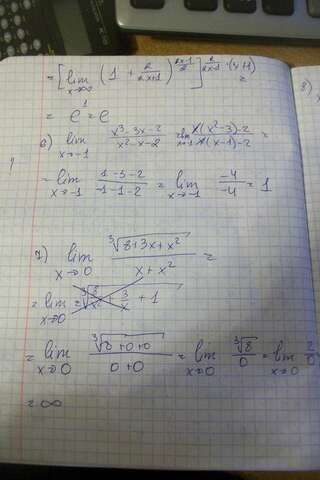 = [lim x→∞ (1 + 2/(2x+1))^((2x-1)/2)]^(2/(2x-1) · (x+1)) =
= e^1 = e
6) lim x→-1 (x^3-3x-2)/(x^2-x-2) = lim x→-1 (x(x^2-3)-2)/(x(x-1)-2) =
= lim x→-1 (1-3-2)/(-1-1-2) = lim x→-1 (-4)/(-4) = 1
8)
7) lim x→0 ∛(8+3x+x^2)/(x+x^2) =
= lim x→0 = ∛(8/x^2 + 3/x + 1)
= lim x→0 ∛(8+0+0)/(0+0) = lim x→0 ∛8/0 = lim x→0 2/0
= ∞